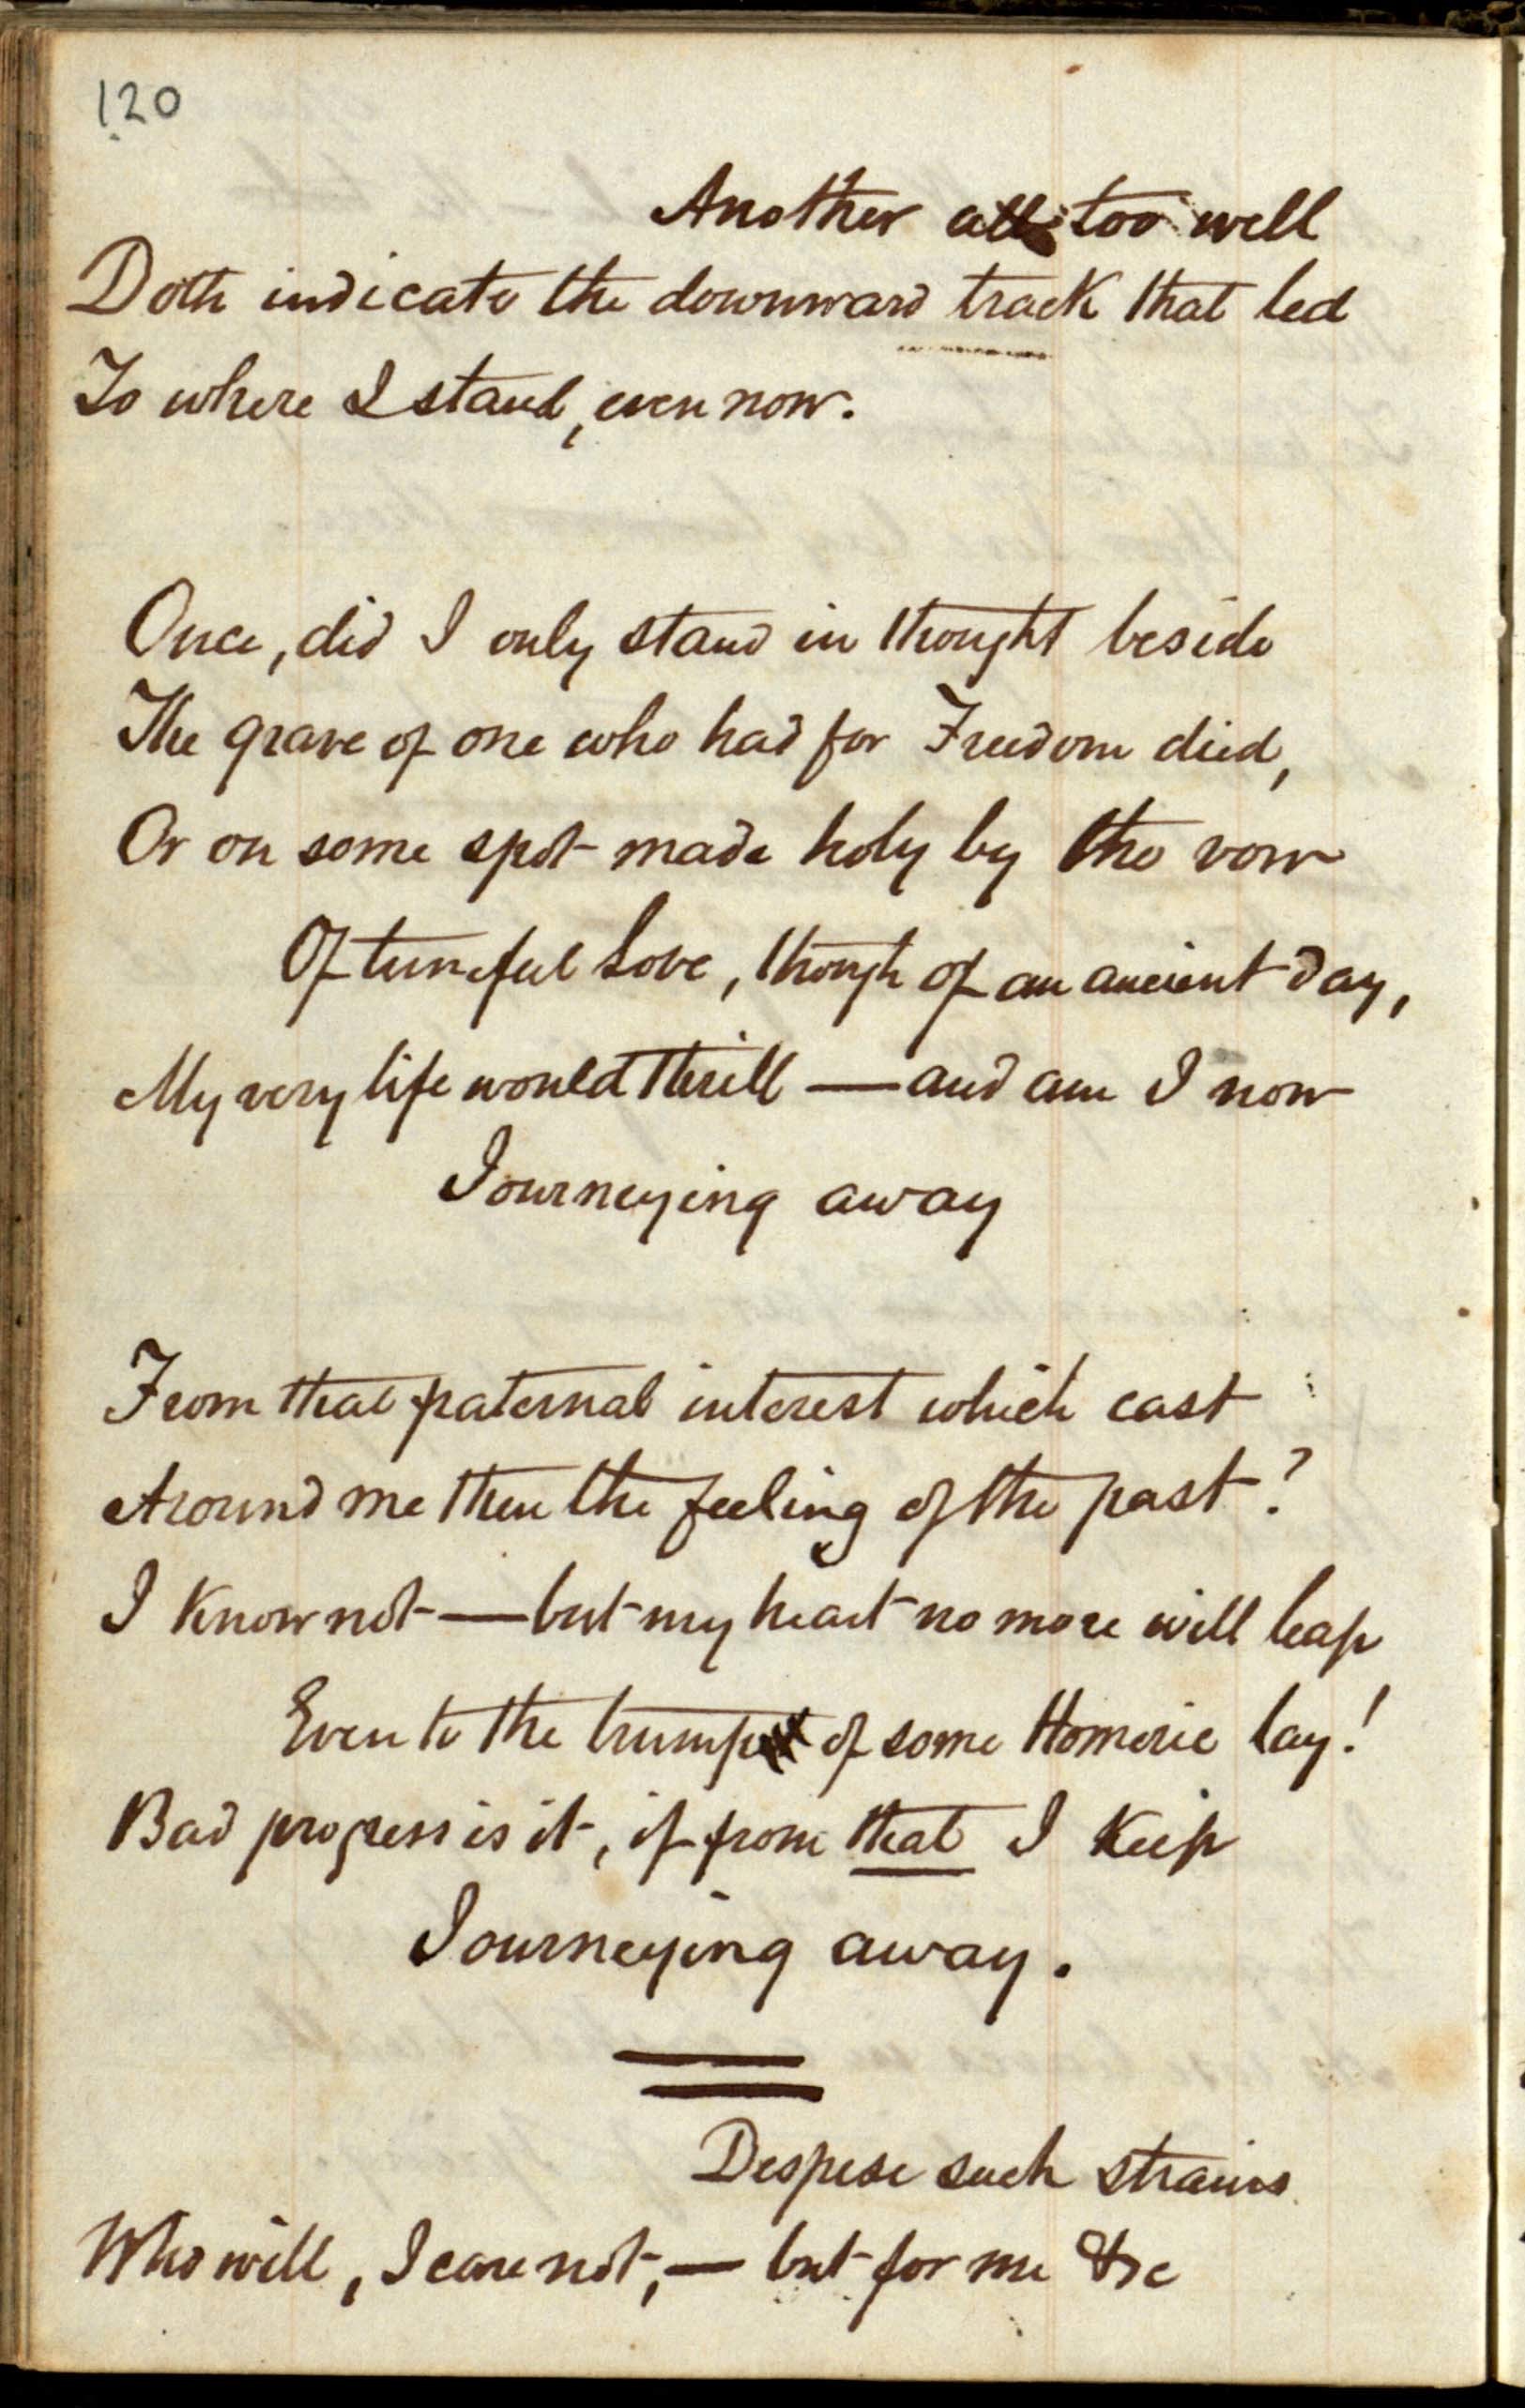 120
Another all too well
Doth indicate the downward track that led
To where I stand, even now.
Once, did I only stand in thought beside
The grave of one who had for Freedom died,
Or on some spot made holy by the vow
Of tuneful Love, though of an ancient day,
My very life would thrill — and am I now
Journeying away
From that paternal interest which cast
Around me then the feeling of the past?
I know not — but my heart no more will leap
Even to the trump of some Homeric lay!
Bad progress is it, if from that I keep
Journeying away.
Despise such strains
Who will, I care not, — but for me &c